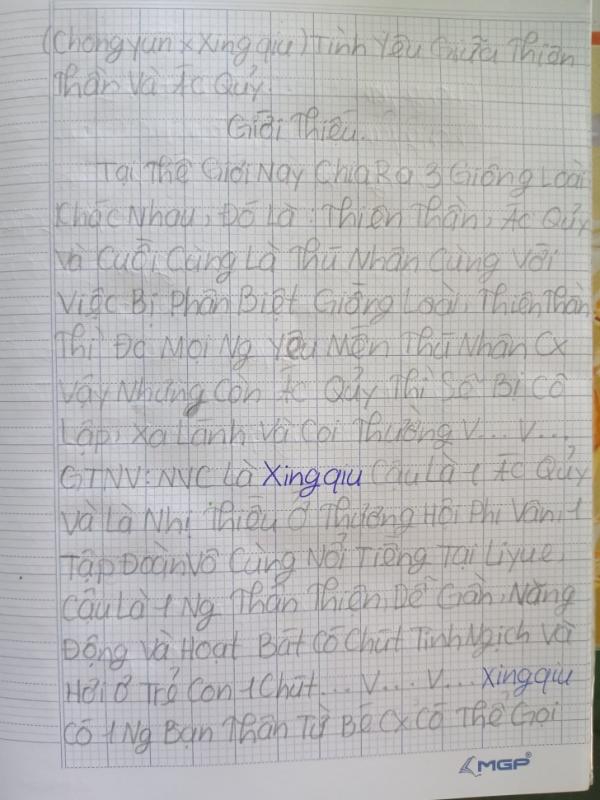 (Chongyun x Xingqiu) Tình Yêu Giữa Thiên
Thần Và Ác Quỷ.
Giới Thiệu.
Tại Thế Giới Này Chia Ra 3 Giống Loài
Khác Nhau, Đó Là: Thiên Thần, Ác Quỷ
Và Cuối Cùng Là Thú Nhân Cùng Với
Việc Bị Phân Biệt Giống Loài, Thiên Thần
Thì Đc Mọi Ng Yêu Mến Thú Nhân Cx
Vậy Nhưng Còn Ác Quỷ Thì Sẽ Bị Cô
Lập, Xa Lánh Và Coi Thường V...V...
GTNV: NVC Là Xingqiu Cậu Là 1 Ác Quỷ
Và Là Nhị Thiếu Ở Thương Hội Phi Vân, 1
Tập Đoàn Vô Cùng Nổi Tiếng Tại Liyue,
Cậu Là 1 Ng Thân Thiện, Dễ Gần, Năng
Động Và Hoạt Bát Có Chút Tinh Ngịch Và
Hơi Ở Trẻ Con 1 Chút...V...V... Xingqiu
Có 1 Ng Bạn Thân Từ Bé Cx Có Thể Gọi
MGP